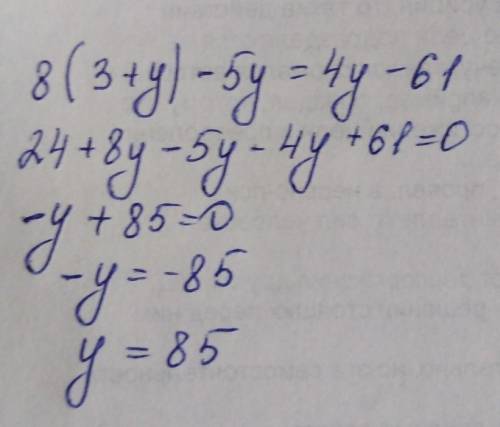 8(3+y)-5y=4y-61
24+8y-5y-4y+61=0
-y+85=0
-y=-85
y=85